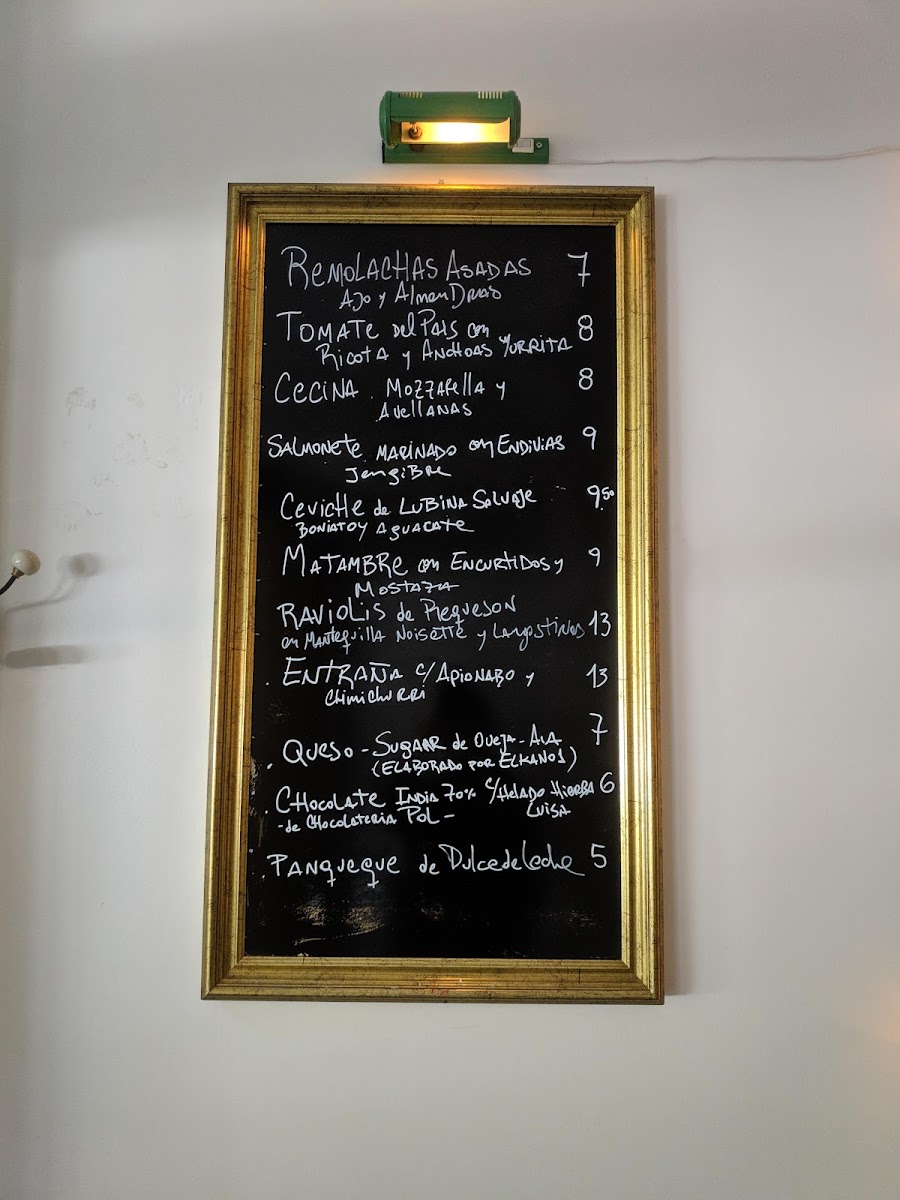 REMOLACHAS ASADAS 7
AJO y AlmenDras
TOMATE del Pais con 8
RicotA y ANCHOAS YURRITA
CECINA. MOZZARella y 8
AvellANAS
SALMONETE MARINADO con ENDIViAS 9
JengiBRe
CEVICHE de LUBINA SALVAJE 9,50
BONIATO y AGUACATE
MATAMBRE con ENCURTIDOS y 9
MOSTAZA
RAVIOLIS de Requeson
en MANTEquillA Noisette y LANgostiNos 13
. ENTRAÑA c/APIONABO y 13
Chimichurri
. QUESO - SUGAAR de OVEJA - 7
(ELABORADO POR ELKANO1)
. CHOCOLATE INDIA 70% c/HelADO HIERBA 6
- de CHOCOLATERIA POL - LUISA
. PANQUEQUE de Dulce de leche 5